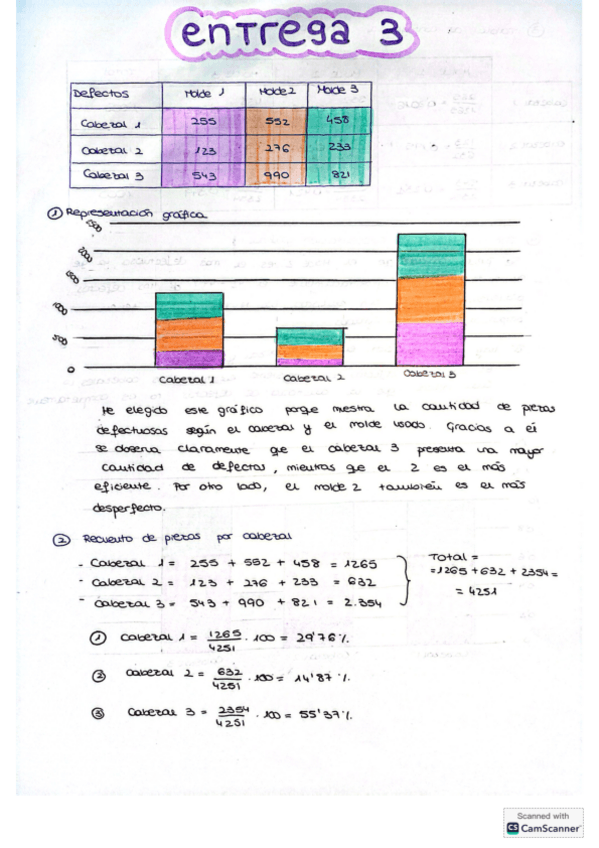 entrega 3
Defectos Molde 1 Molde 2 Molde 3
Cabezal 1 255 552 458
Cabezal 2 123 276 233
Cabezal 3 543 990 821
① Representación gráfica
2500
2000
1500
1000
500
0
Cabezal 1 Cabezal 2 Cabezal 3
He elegido este gráfico porque muestra la cantidad de piezas
defectuosas según el cabezal y el molde usado. Gracias a él
se observa claramente que el cabezal 3 presenta una mayor
cantidad de defectos, mientras que el 2 es el más
eficiente. Por otro lado, el molde 2 también es el más
desperfecto.
② Recuento de piezas por cabezal
- Cabezal 1 = 255 + 552 + 458 = 1265
- Cabezal 2 = 123 + 276 + 233 = 632
- Cabezal 3 = 543 + 990 + 821 = 2.354
Total =
= 1265 + 632 + 2354 =
= 4251
① Cabezal 1 = 1265/4251 · 100 = 29'76 %
② Cabezal 2 = 632/4251 · 100 = 14'87 %
③ Cabezal 3 = 2354/4251 · 100 = 55'37 %
Scanned with
CS CamScanner